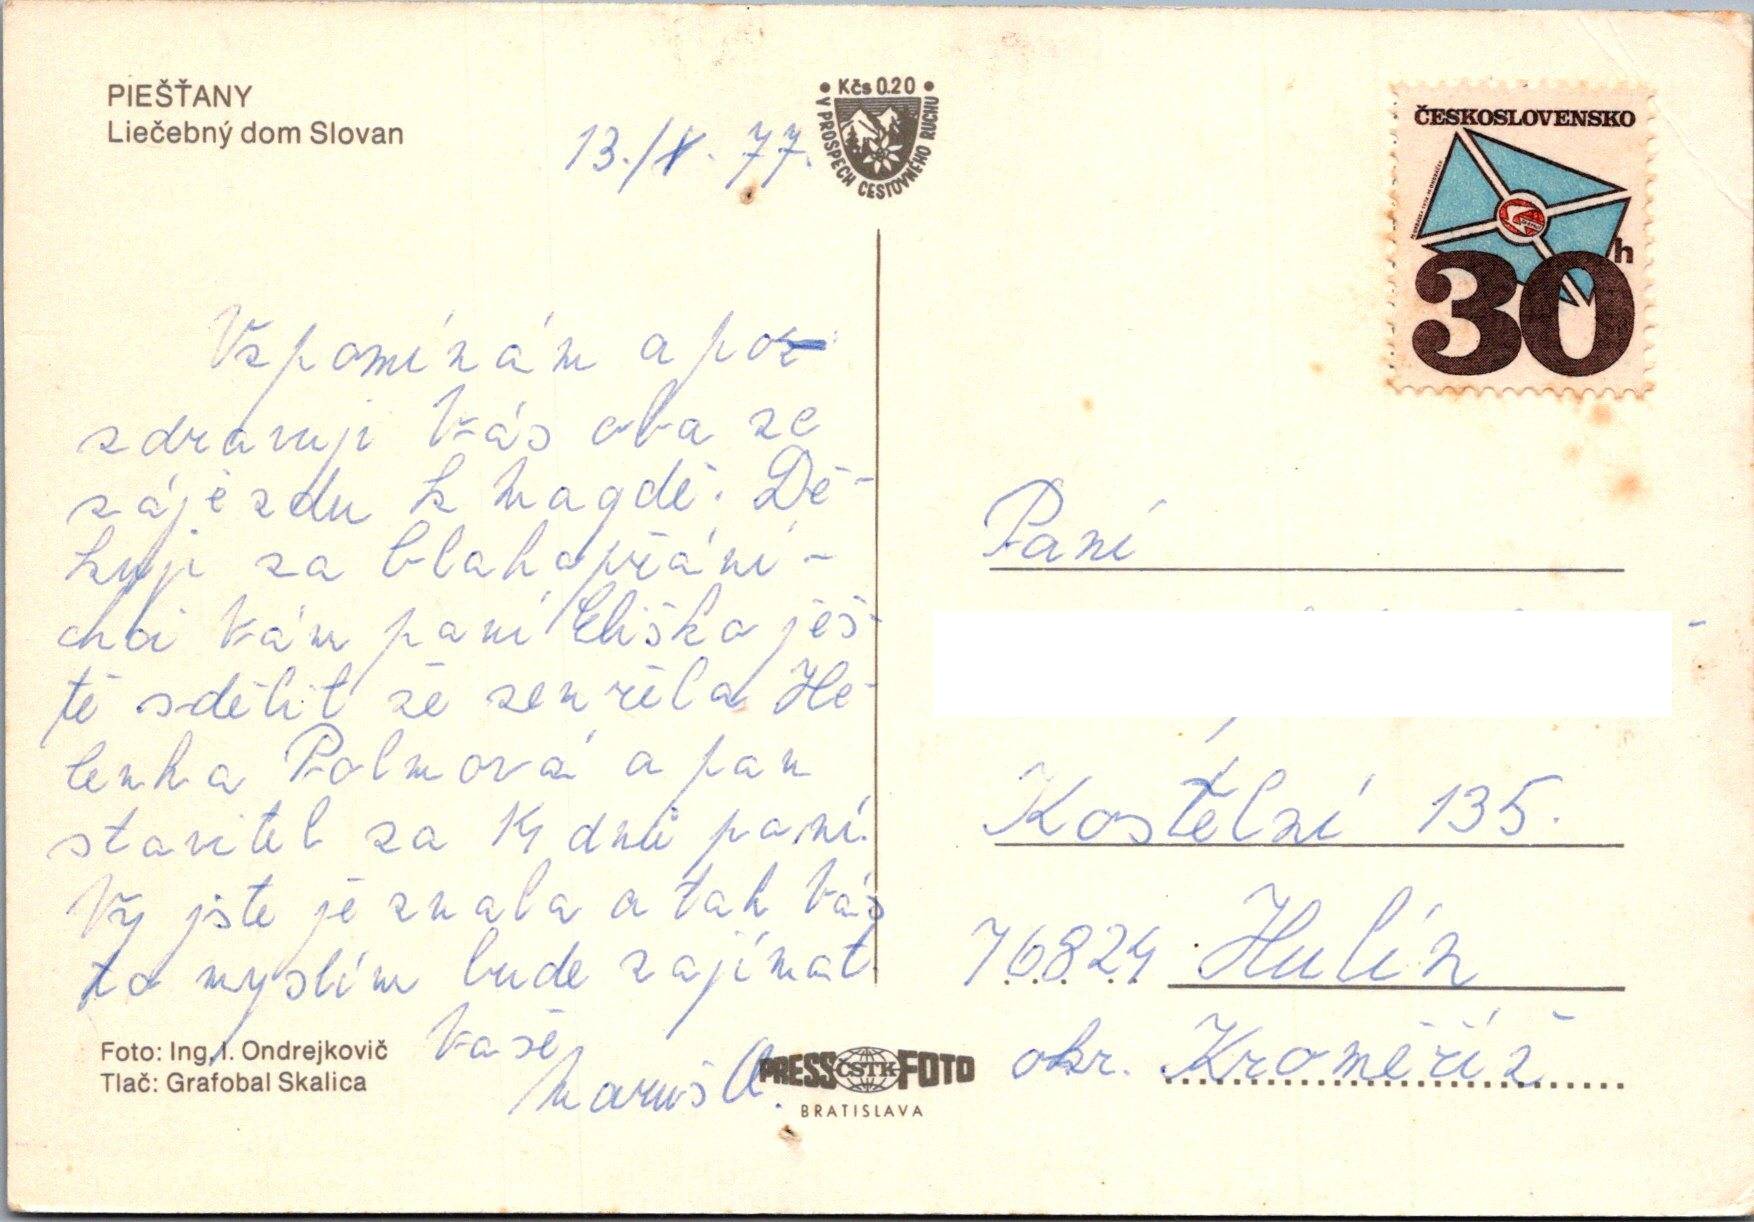 PIEŠŤANY
Liečebný dom Slovan
13./X. 77.
Kčs 0.20
V PROSPECH CESTOVNÉHO RUCHU
ČESKOSLOVENSKO
30h
Vzpomínám a poz-
zdravuji Vás oba ze
zájezdu k Magdě. Dě-
kuji za blahopřání -
chci Vám paní Eliško ješ-
tě sdělit že zemřela He-
lenka Palmová a pan
stavitel za 14 dnů paní.
Vy jste je znala a tak Vás
to myslím bude zajímat.
Vaše
Maruš
Paní
Kostelní 135.
76824 Hulín
okr. Kroměříž
Foto: Ing. I. Ondrejkovič
Tlač: Grafobal Skalica
PRESS ČSTK FOTO
BRATISLAVA